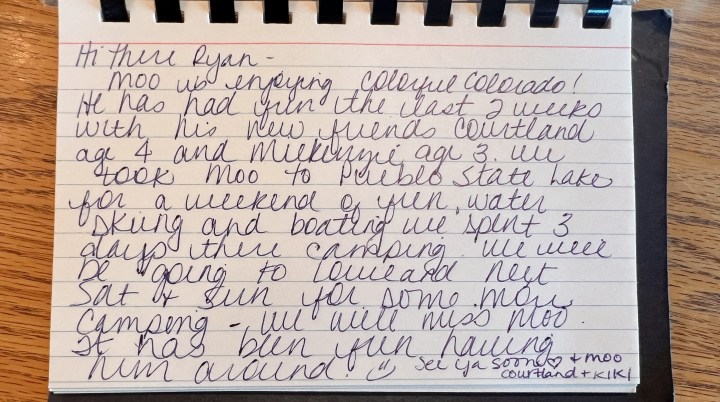 Hi there Ryan -
Moo is enjoying Colorful Colorado!
He has had fun the last 2 weeks
with his new friends Courtland
age 4 and Mckenzie, age 3. We
took Moo to Pueblo State Lake
for a weekend of fun, water
skiing and boating we spent 3
days there camping. We will
be going to Loveland next
Sat + Sun for some more
camping - we will miss Moo.
It has been fun having
him around! ☺ See ya soon ♡ + Moo
Courtland + KiKi